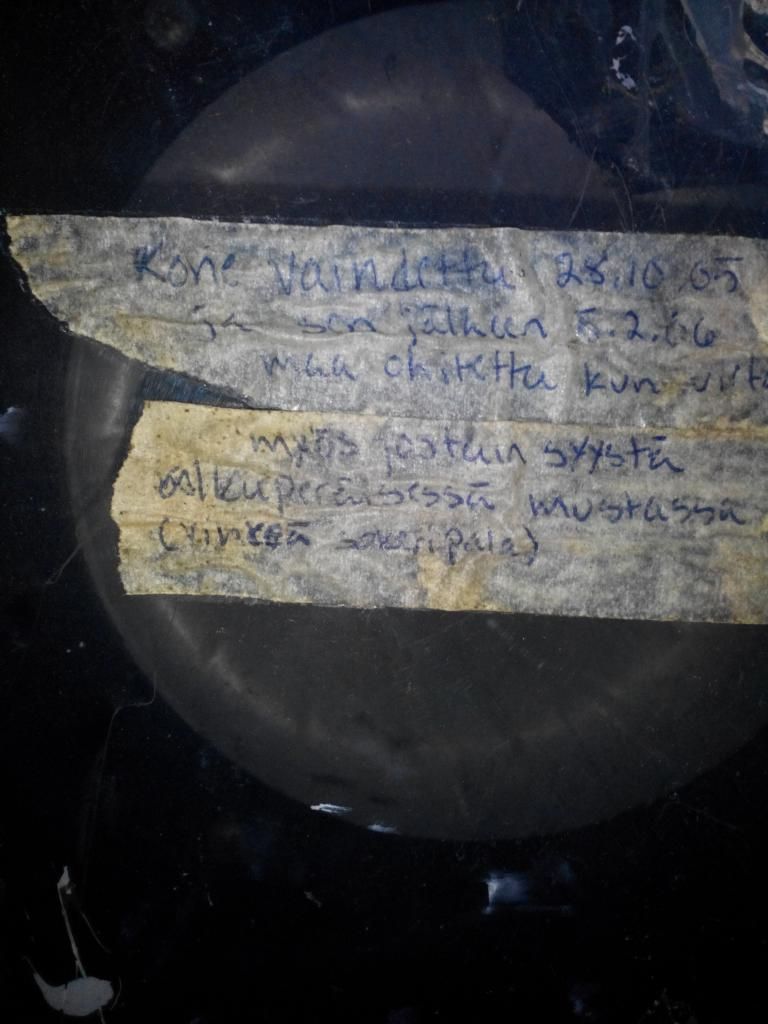 Kone vaihdettu 28.10.05
ja sen jälkeen 5.2.06
maa ohitettu kun virta
myös jostain syystä
alkuperäisessä mustassa
(vinkeä sokeripala)